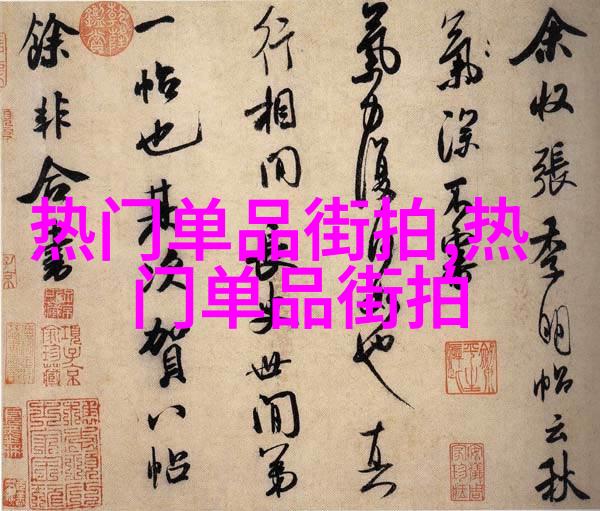 余收張季明帖云秋
氣深不審
氣力復何如也真
行相間長安世間第
一帖也其次賀八帖
餘非合書
热门单品街拍,热
门单品街拍